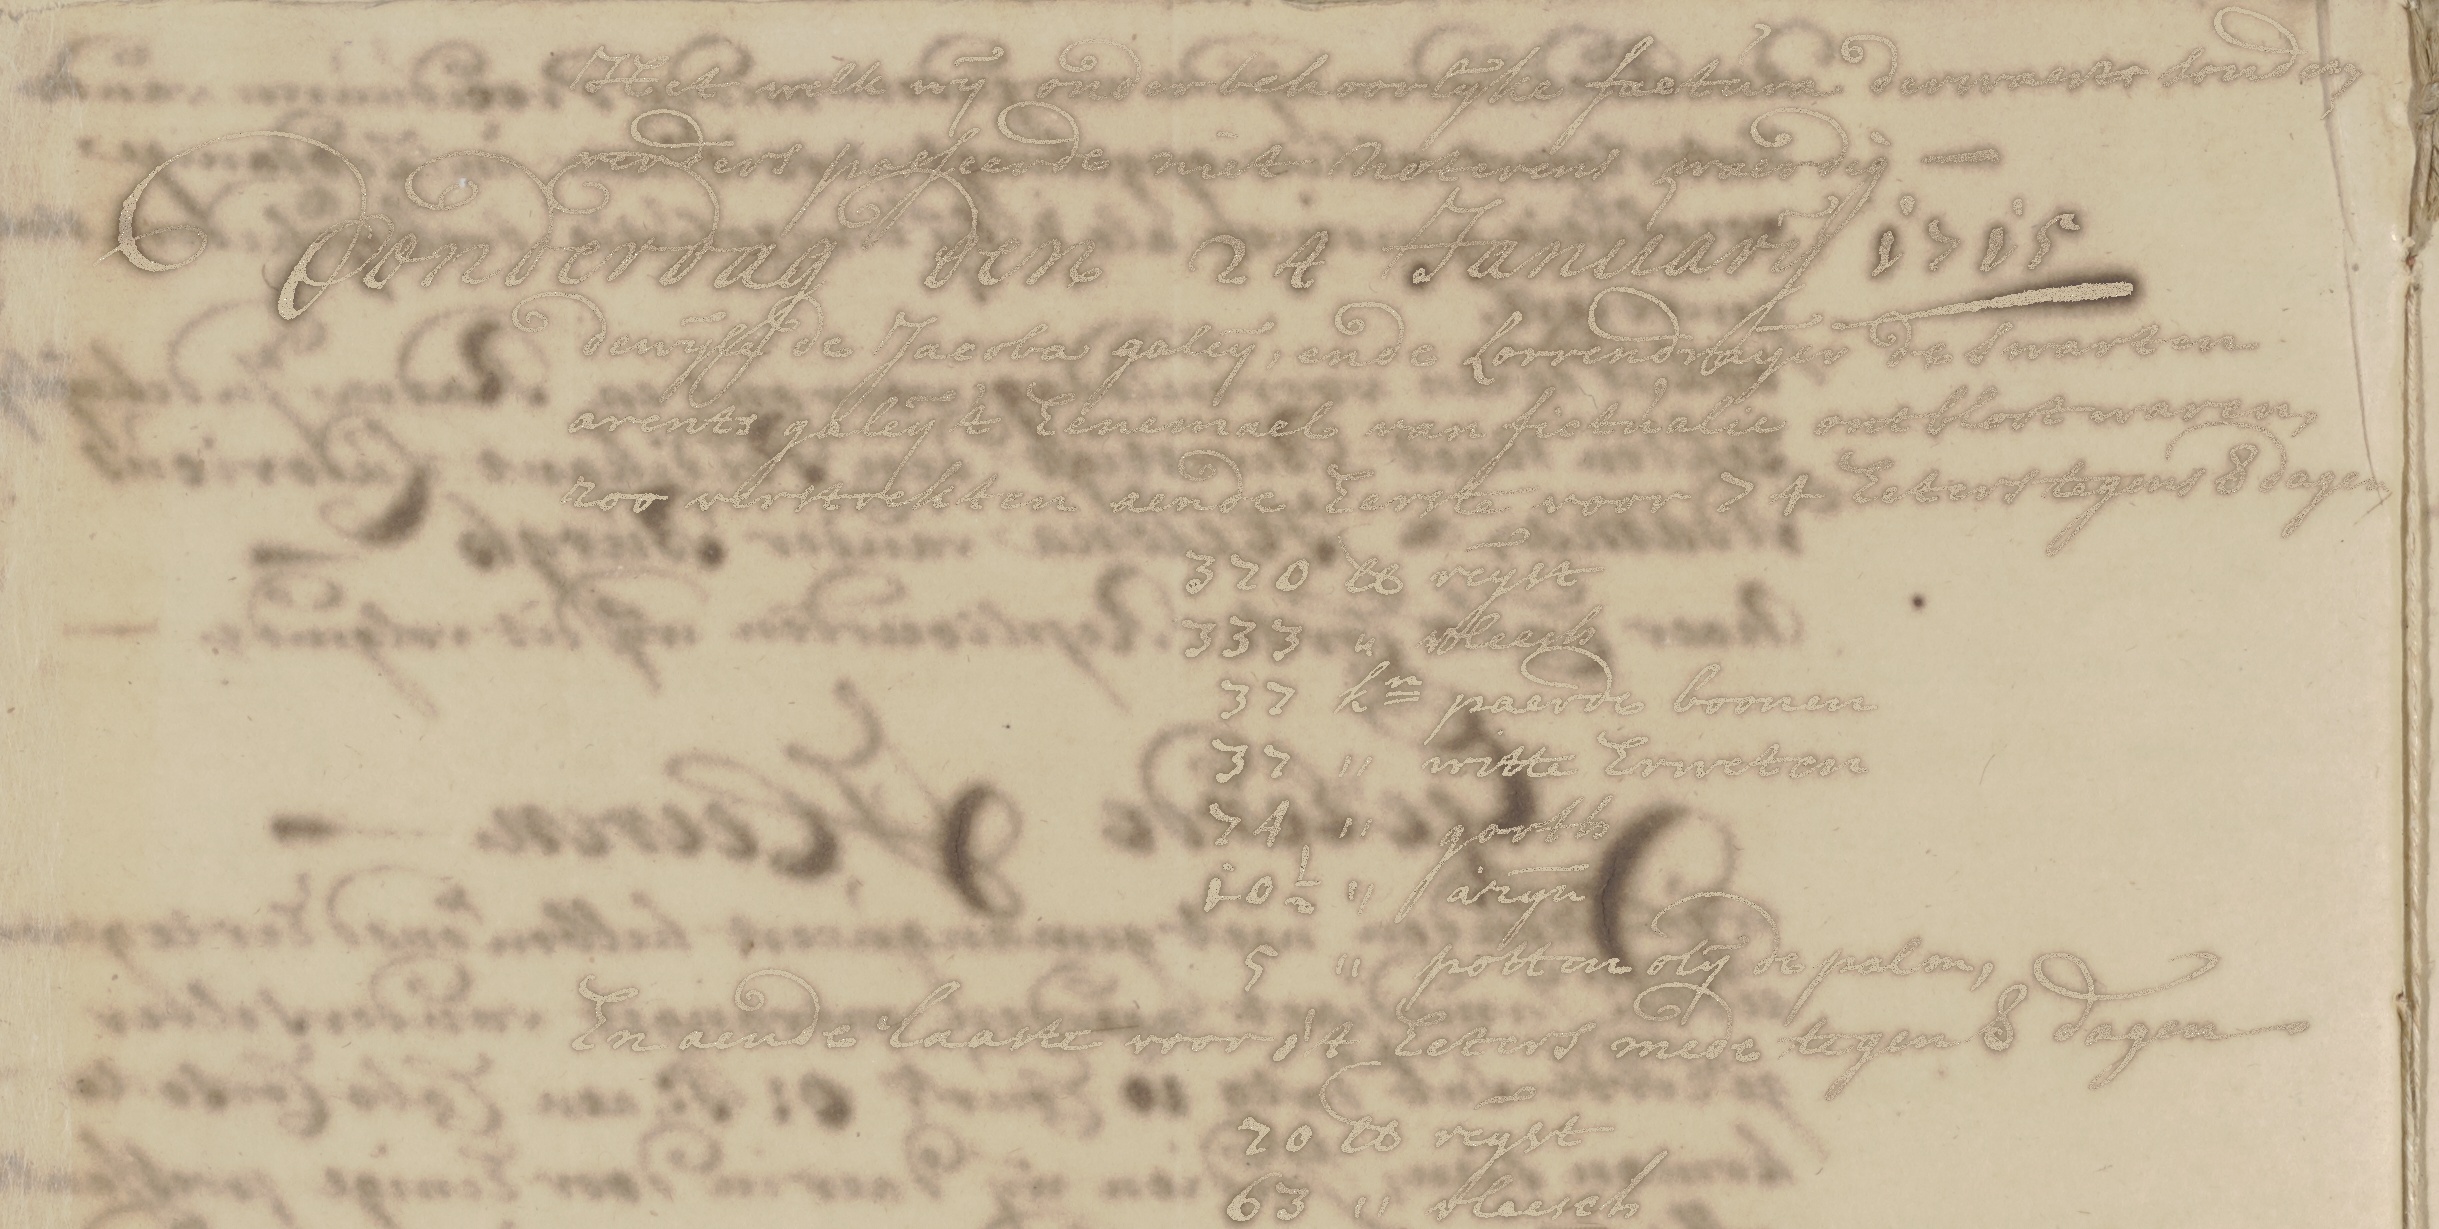 Het welk wij onder behoorlijke factura derwaerts sonden
verders passeerde niet noterens waerdig —
Donderdag den 24 Januarij 1715
dewijle de Jacoba galeij, ende Lorrendraijer de swarten
arents galeij t' Eenemael van fictualie ontbloot waren,
zoo verstrekten aende Eerste voor 74 Eeters tegens 8 dagen
370 lb reijst
333 " vleesch
37 kn paerde boonen
37 " witte Erweten
74 " gortt
10½ " azijn
5 " potten olij de palm,
En aende laaste voor 14 Eeters mede tegen 8 dagen
70 lb reijst
63 " vleesch